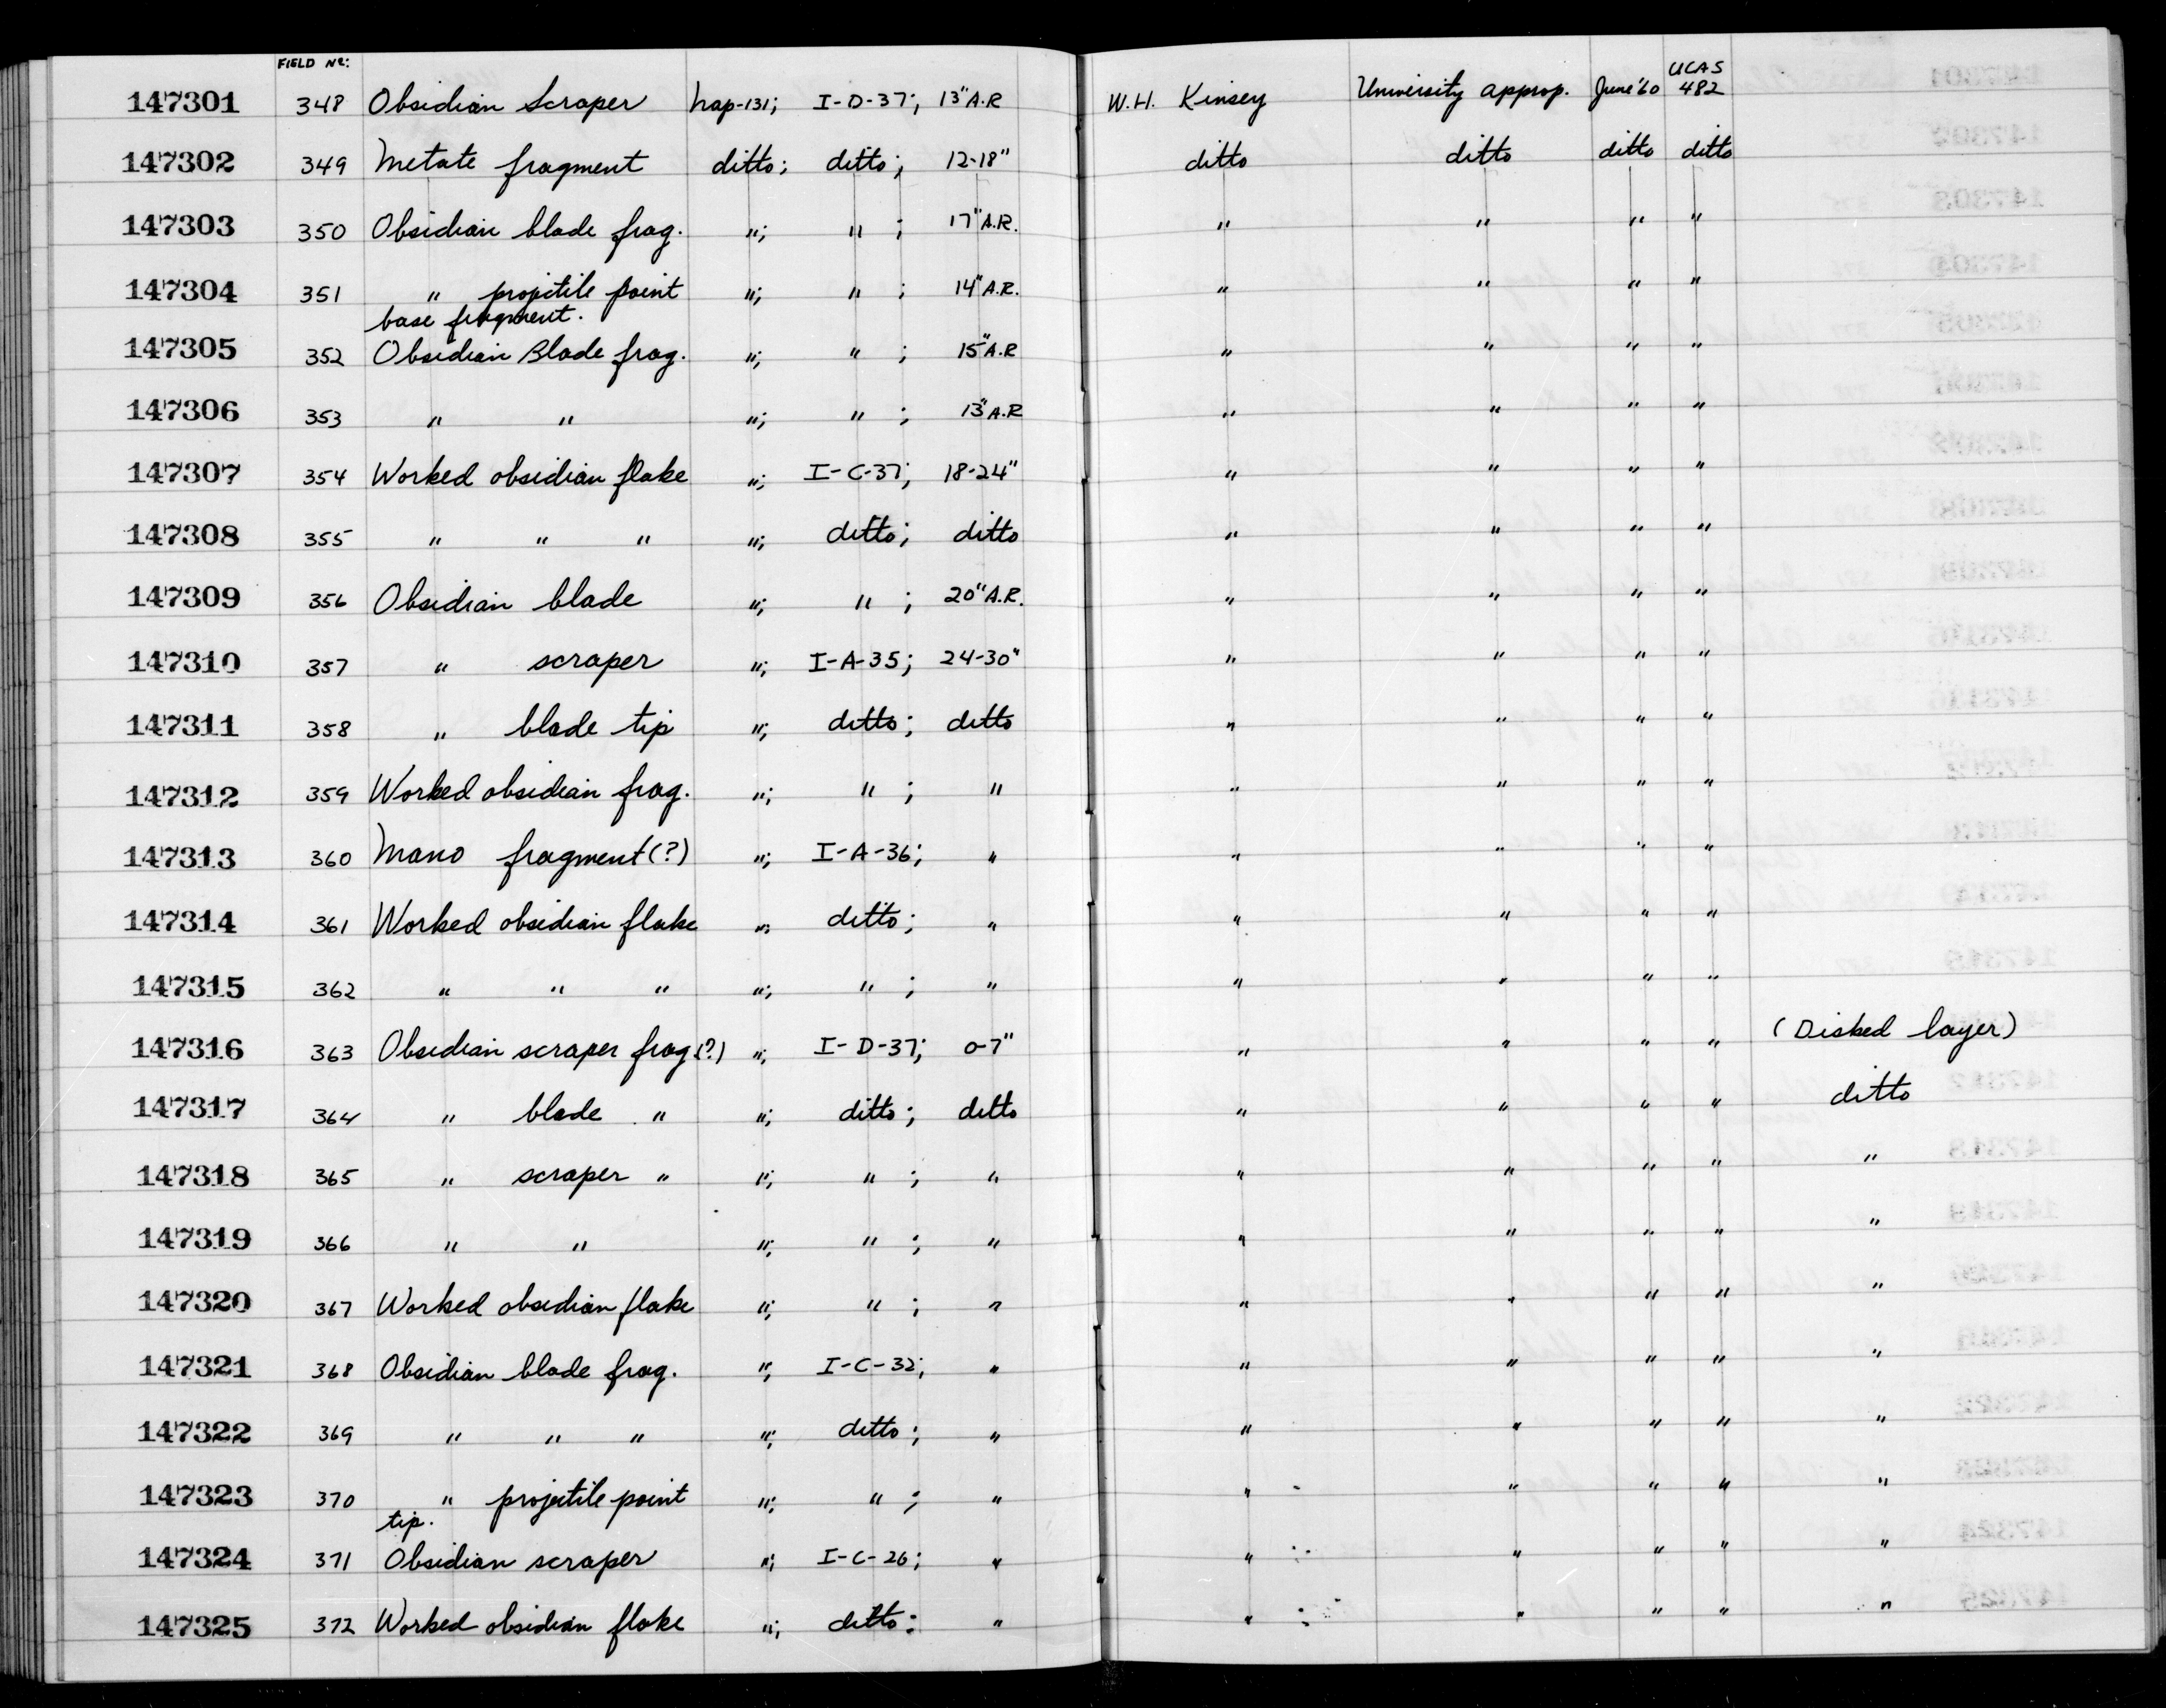 FIELD No:
147301 348 Obsidian Scraper Nap-131; I-D-37; 13" A.R W.H. Kinsey University approp. June '60 UCAS 482
147302 349 Metate fragment ditto; ditto; 12-18" ditto ditto ditto ditto
147303 350 Obsidian blade frag. "; " ; 17" A.R. " " " "
147304 351 " projctile point base fragment. "; " ; 14" A.R. " " " "
147305 352 Obsidian Blade frag. "; " ; 15" A.R " " " "
147306 353 " " "; " ; 13" A.R " " " "
147307 354 Worked obsidian flake "; I-C-37; 18-24" " " " "
147308 355 " " " "; ditto; ditto " " " "
147309 356 Obsidian blade "; " ; 20" A.R. " " " "
147310 357 " scraper "; I-A-35; 24-30" " " " "
147311 358 " blade tip "; ditto; ditto " " " "
147312 359 Worked obsidian frag. "; " ; " " " " "
147313 360 Mano fragment (?) "; I-A-36; " " " " "
147314 361 Worked obsidian flake "; ditto; " " " " "
147315 362 " " " "; " ; " " " " "
147316 363 Obsidian scraper frag (?) "; I-D-37; 0-7" " " " " (Disked layer)
147317 364 " blade " "; ditto; ditto " " " " ditto
147318 365 " scraper " "; " ; " " " " " "
147319 366 " " "; " ; " " " " " "
147320 367 Worked obsidian flake "; " ; " " " " " "
147321 368 Obsidian blade frag. "; I-C-32; " " " " " "
147322 369 " " " "; ditto; " " " " " "
147323 370 " projectile point tip. "; " ; " " " " " "
147324 371 Obsidian scraper "; I-C-26; " " " " " "
147325 372 Worked obsidian flake "; ditto; " " " " " "